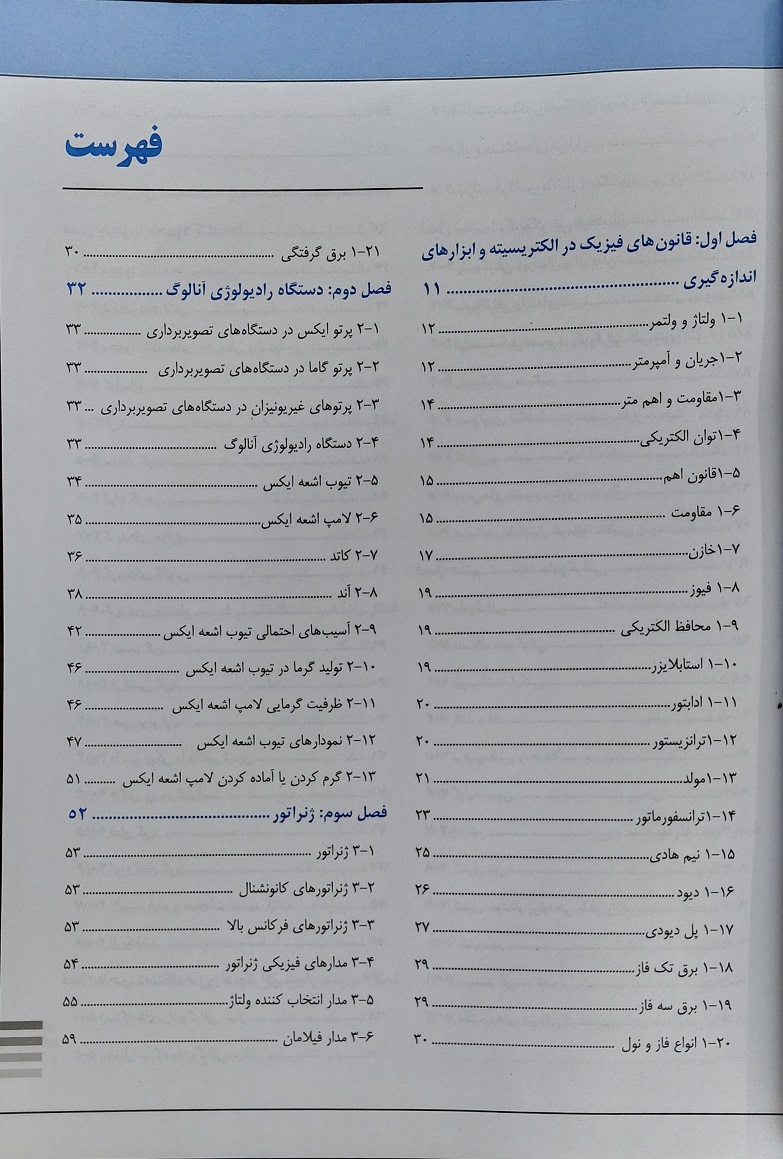 فهرست
فصل اول: قانون‌های فیزیک در الکتریسیته و ابزارهای
اندازه‌گیری ................................................ ۱۱
۱-۱ ولتاژ و ولتمر................................................ ۱۲
۱-۲جریان و آمپرمتر................................................ ۱۲
۱-۳مقاومت و اهم متر................................................ ۱۴
۱-۴توان الکتریکی................................................ ۱۴
۱-۵قانون اهم................................................ ۱۵
۱-۶ مقاومت ................................................ ۱۵
۱-۷خازن................................................ ۱۷
۱-۸ فیوز ................................................ ۱۹
۱-۹ محافظ الکتریکی ................................................ ۱۹
۱-۱۰ استابلایزر................................................ ۱۹
۱-۱۱ ادابتور................................................ ۲۰
۱-۱۲ترانزیستور ................................................ ۲۰
۱-۱۳مولد................................................ ۲۱
۱-۱۴ترانسفورماتور ................................................ ۲۳
۱-۱۵ نیم هادی................................................ ۲۵
۱-۱۶ دیود ................................................ ۲۶
۱-۱۷ پل دیودی................................................ ۲۷
۱-۱۸ برق تک فاز................................................ ۲۹
۱-۱۹ برق سه فاز................................................ ۲۹
۱-۲۰ انواع فاز و نول ................................................ ۳۰
۱-۲۱ برق گرفتگی ................................................ ۳۰
فصل دوم: دستگاه رادیولوژی آنالوگ ................ ۳۲
۲-۱ پرتو ایکس در دستگاه‌های تصویربرداری ................ ۳۳
۲-۲ پرتو گاما در دستگاه‌های تصویربرداری ................ ۳۳
۲-۳ پرتوهای غیریونیزان در دستگاه‌های تصویربرداری ... ۳۳
۲-۴ دستگاه رادیولوژی آنالوگ ................................ ۳۳
۲-۵ تیوب اشعه ایکس ................................................ ۳۴
۲-۶ لامپ اشعه ایکس................................................ ۳۵
۲-۷ کاتد ................................................ ۳۶
۲-۸ آند ................................................ ۳۸
۲-۹ آسیب‌های احتمالی تیوب اشعه ایکس ................ ۴۲
۲-۱۰ تولید گرما در تیوب اشعه ایکس ................ ۴۶
۲-۱۱ ظرفیت گرمایی لامپ اشعه ایکس ................ ۴۶
۲-۱۲ نمودارهای تیوب اشعه ایکس ................ ۴۷
۲-۱۳ گرم کردن یا آماده کردن لامپ اشعه ایکس ......... ۵۱
فصل سوم: ژنراتور ................................................ ۵۲
۳-۱ ژنراتور ................................................ ۵۳
۳-۲ ژنراتورهای کانونشنال ................................ ۵۳
۳-۳ ژنراتورهای فرکانس بالا ................................ ۵۳
۳-۴ مدارهای فیزیکی ژنراتور ................................ ۵۴
۳-۵ مدار انتخاب کننده ولتاژ................................ ۵۵
۳-۶ مدار فیلامان ................................................ ۵۹